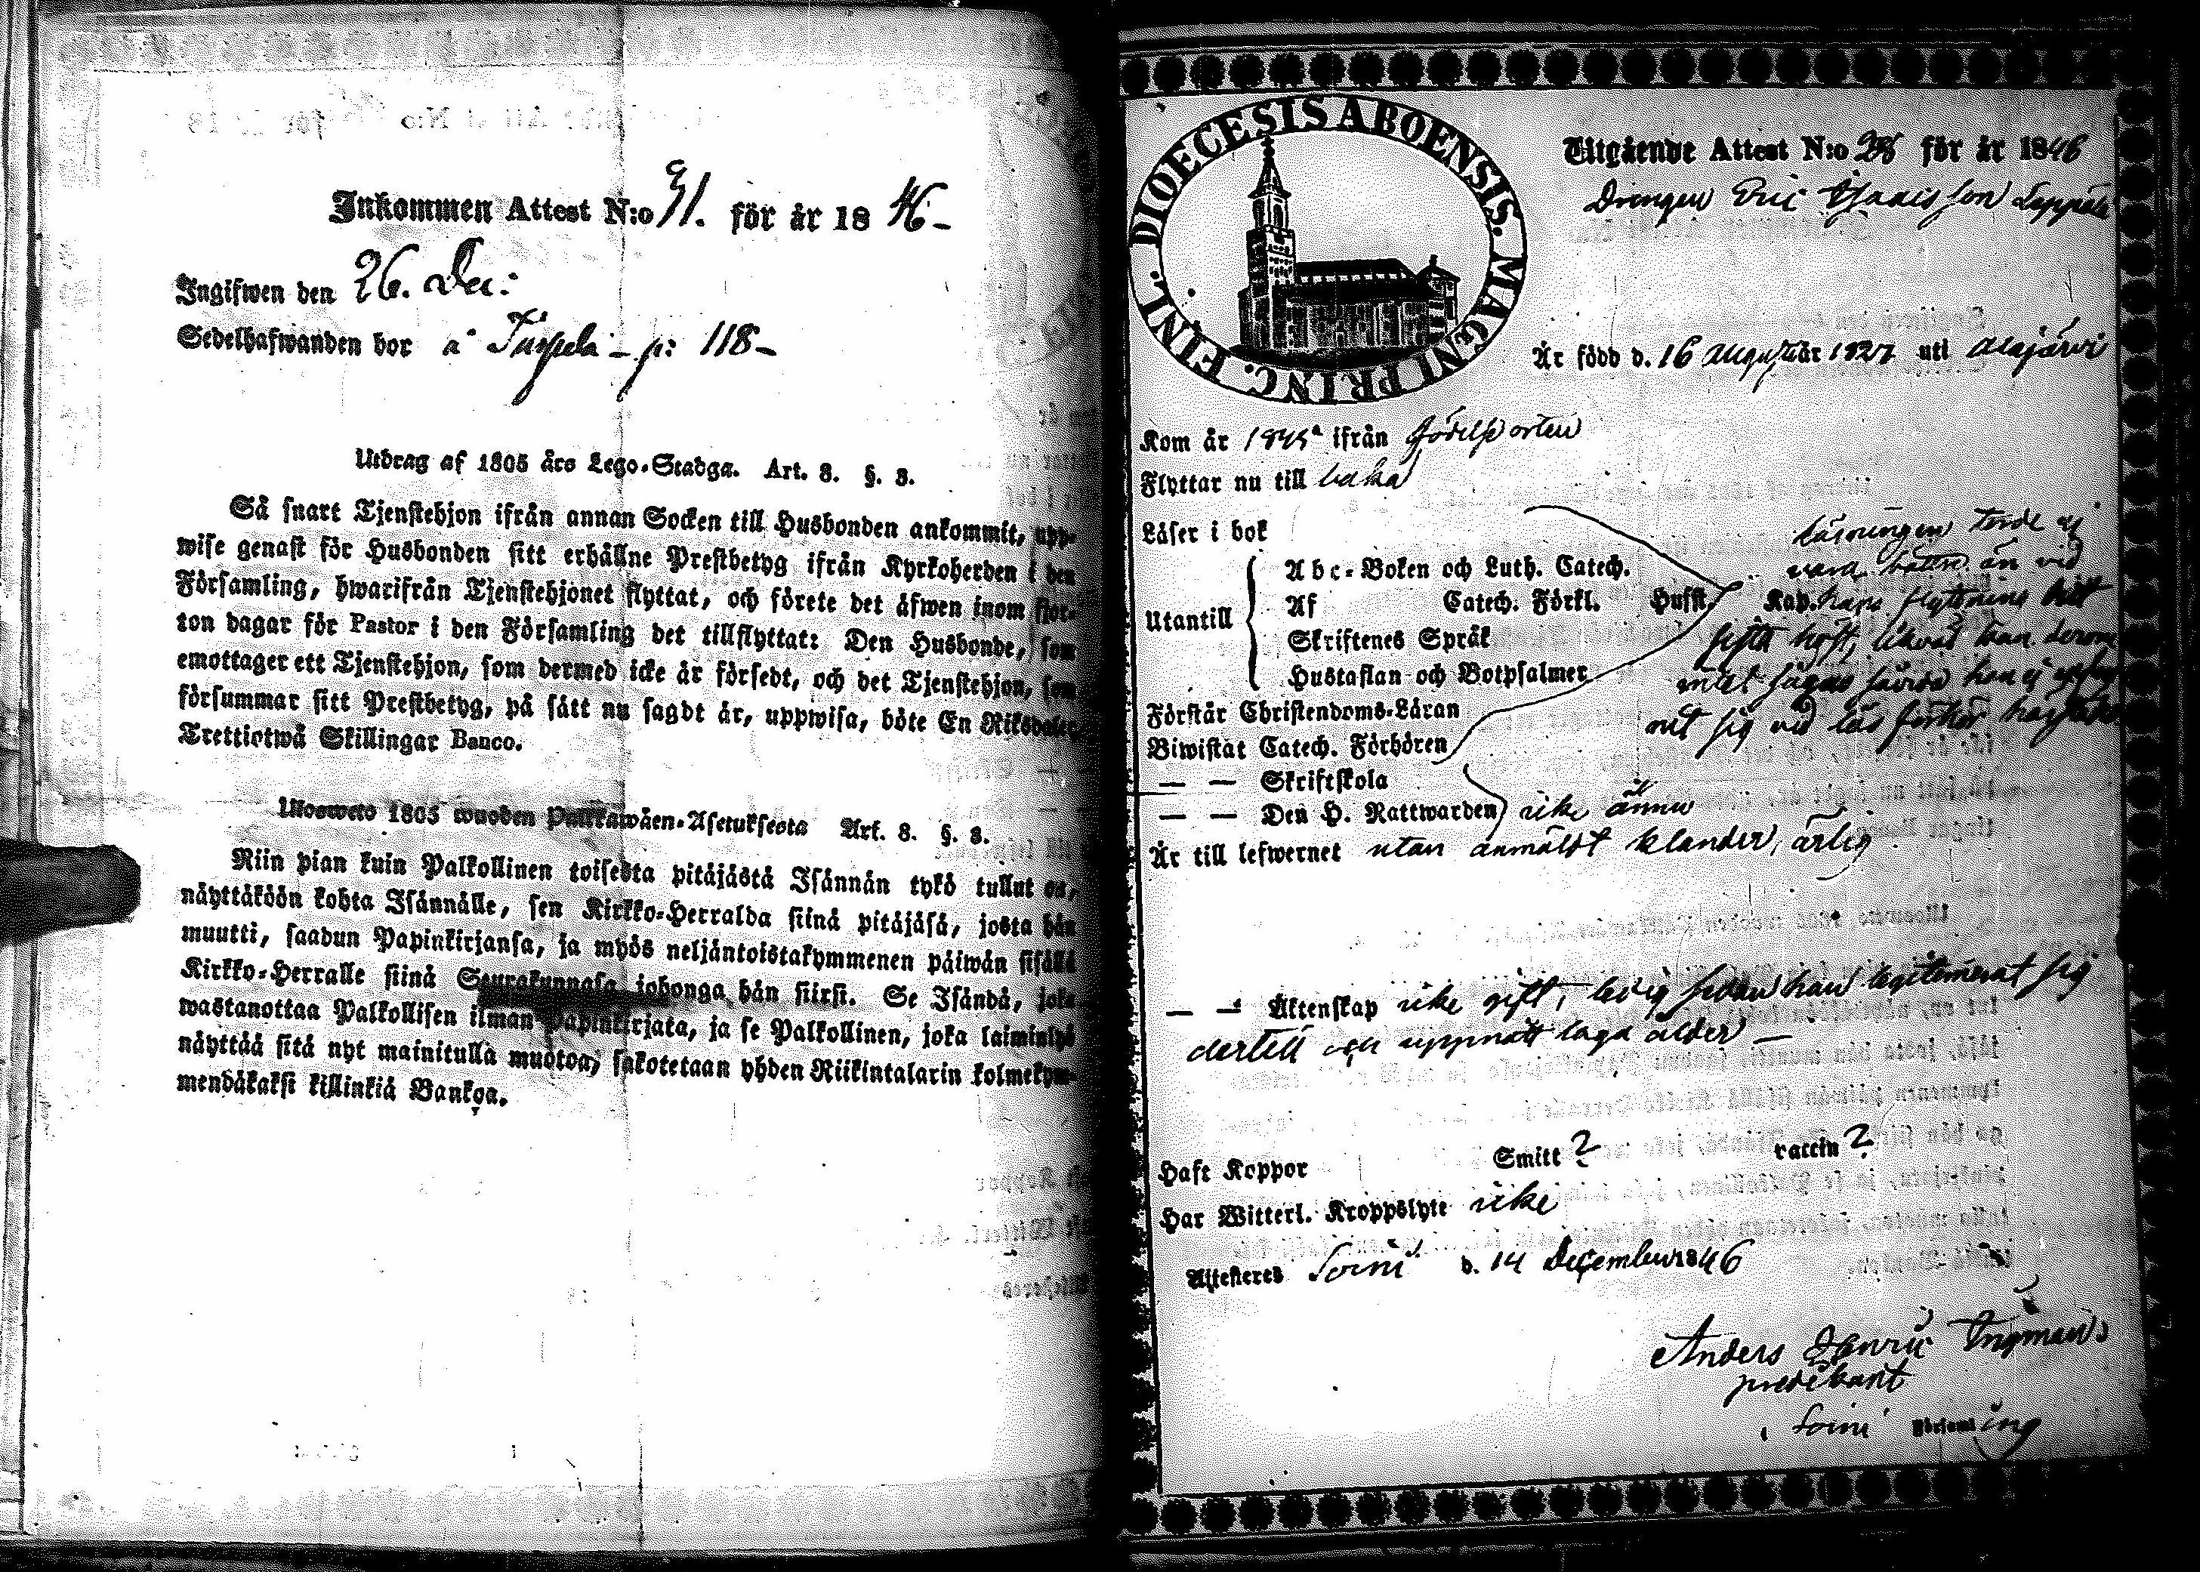 Inkommen Attest N:o 31. för år 18 46-
Ingifwen den 26. Dec:
Sedelhafwanden bor å p: 118-
Utdrag af 1805 års Lego-Stadga. Art. 8. §. 3.
Så snart Tjenstehjon ifrån annan Socken till Husbonden ankommit, upp-
wise genast för Husbonden sitt erhållne Prestbetyg ifrån Kyrkoherden i den
Församling, hwarifrån Tjenstehjonet flyttat, och förete det äfwen inom fjor-
ton dagar för Pastor i den Församling det tillflyttat: Den Husbonde, som
emottager ett Tjenstehjon, som dermed icke är försedt, och det Tjenstehjon, som
försummar sitt Prestbetyg, på sätt nu sagdt är, uppwisa, böte En Riksdaler
Trettiotwå Skillingar Banco.
Ulosweto 1805 wuoden Palkkawäen-Asetuksesta Art. 8. §. 3.
Niin pian kuin Palkollinen toisesta pitäjästä Isännän tykö tullut on,
näyttäköön kohta Isännälle, sen Kirkko-Herralda siinä pitäjäsä, josta hän
muutti, saadun Papinkirjansa, ja myös neljäntoistakymmenen päiwän sisällä
Kirkko-Herralle siinä Seurakunnasa johonga hän siirsi. Se Isändä, joka
wastanottaa Palkollisen ilman Papinkirjata, ja se Palkollinen, joka laiminlyö
näyttää sitä nyt mainitulla muotoa, sakotetaan yhden Riikintalarin kolmekym-
mendäkaksi killinkiä Bankoa.
DIOECESIS ABOENSIS. MAGNI PRINC. FINL.
Utgående Attest N:o 28 för år 1846
Drengen Eric Isaacsson
Är född d. 16 Augusti år 1827 uti Alajärvi
Kom år 1845 ifrån födelseorten
Flyttar nu till baka
Läser i bok
Abc-Boken och Luth. Catech.
Utantill Af Catech. Förkl. Husst. Kap.
Skriftenes Språk
Hustaflan och Botpsalmer
läsningen torde ej
vara bättre än vid
hans flyttning hit
Förstår Christendoms-Läran
Biwistat Catech. Förhören
— — Skriftskola
— — Den H. Nattwarden icke ännu
Är till lefwernet utan anmäldt klander, ärlig
— — Äktenskap icke gift, ledig sedan han legitimerat sig
dertill och uppnått laga ålder —
Haft Koppor Smitt ? vaccin ?
Har Witterl. Kroppslyte icke
Attesteres Soini d. 14 December 1846
Anders Henric Ingman
predikant
i Soini Församling